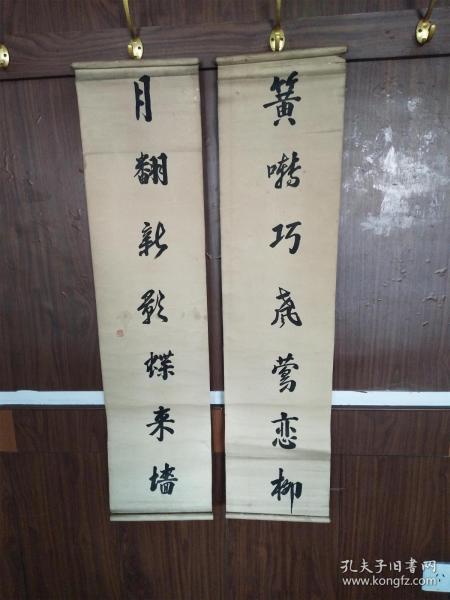 簧啭巧声莺恋柳
月翻新影蝶来墙
孔夫子旧书网
www.kongfz.com